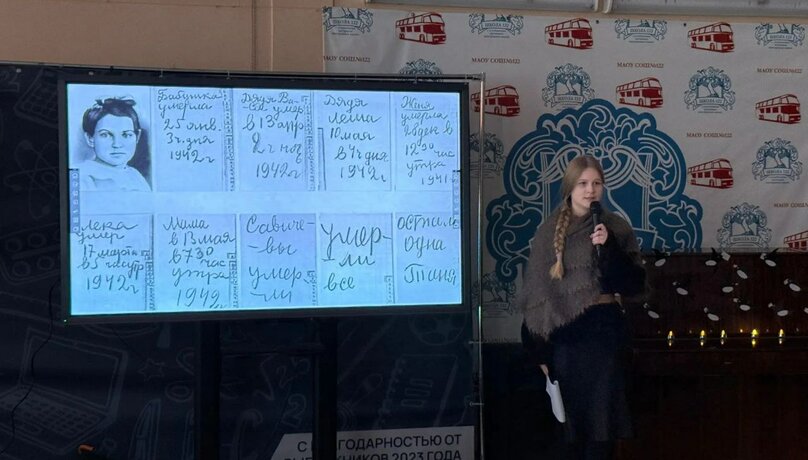 Бабушка
умерла
25 янв.
3ч. дня
1942 г
Дядя Ва-
ся умер
в 13 апр
2 ч ноч
1942 г
Дядя
Леша
10 мая
в 4ч дня
1942 г
Женя
умерла
28 дек в
12 00 час
утра
1941
Лека
умер
17 марта
в 5 час утр
1942 г
Мама
в 13 мая
в 7 30
час
утра
1942 г
Савиче-
-вы
умер-
-ли
умер-
ли
все
одна
Таня
ШКОЛА 122
МАОУ СОШ№122
МАОУ СОШ№122
МАОУ СОШ№122
МАОУ СОШ№122
ОТ
2023 ГОДА